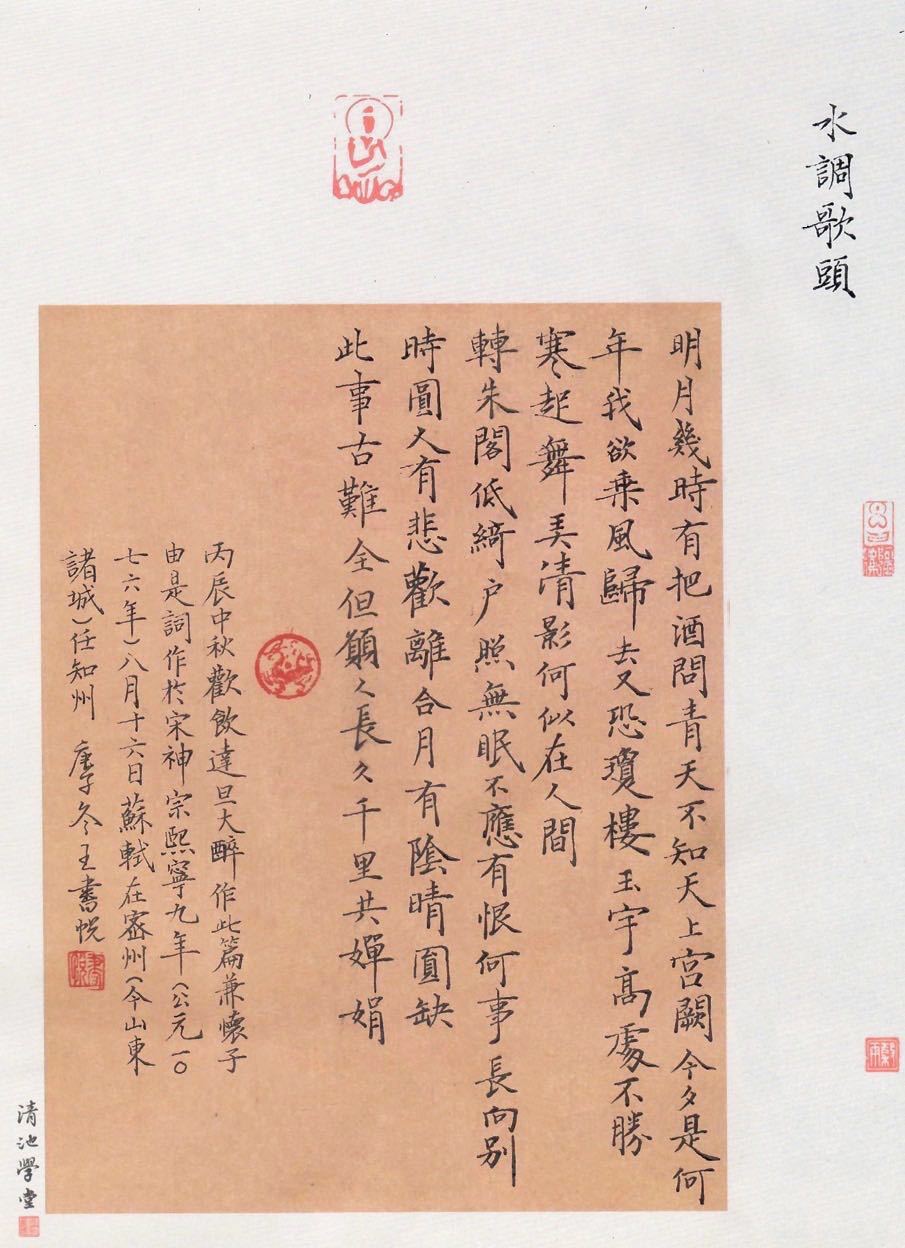 水調歌頭
明月幾時有把酒問青天不知天上宮闕今夕是何
年我欲乘風歸去又恐瓊樓玉宇高處不勝
寒起舞弄清影何似在人間
轉朱閣低綺户照無眠不應有恨何事長向别
時圓人有悲歡離合月有陰晴圓缺
此事古難全但願人長久千里共嬋娟
丙辰中秋歡飲達旦大醉作此篇兼懷子
由是詞作於宋神宗熙寧九年(公元一〇
七六年)八月十六日蘇軾在密州(今山東
諸城)任知州 庚子冬王書悦
清池學堂